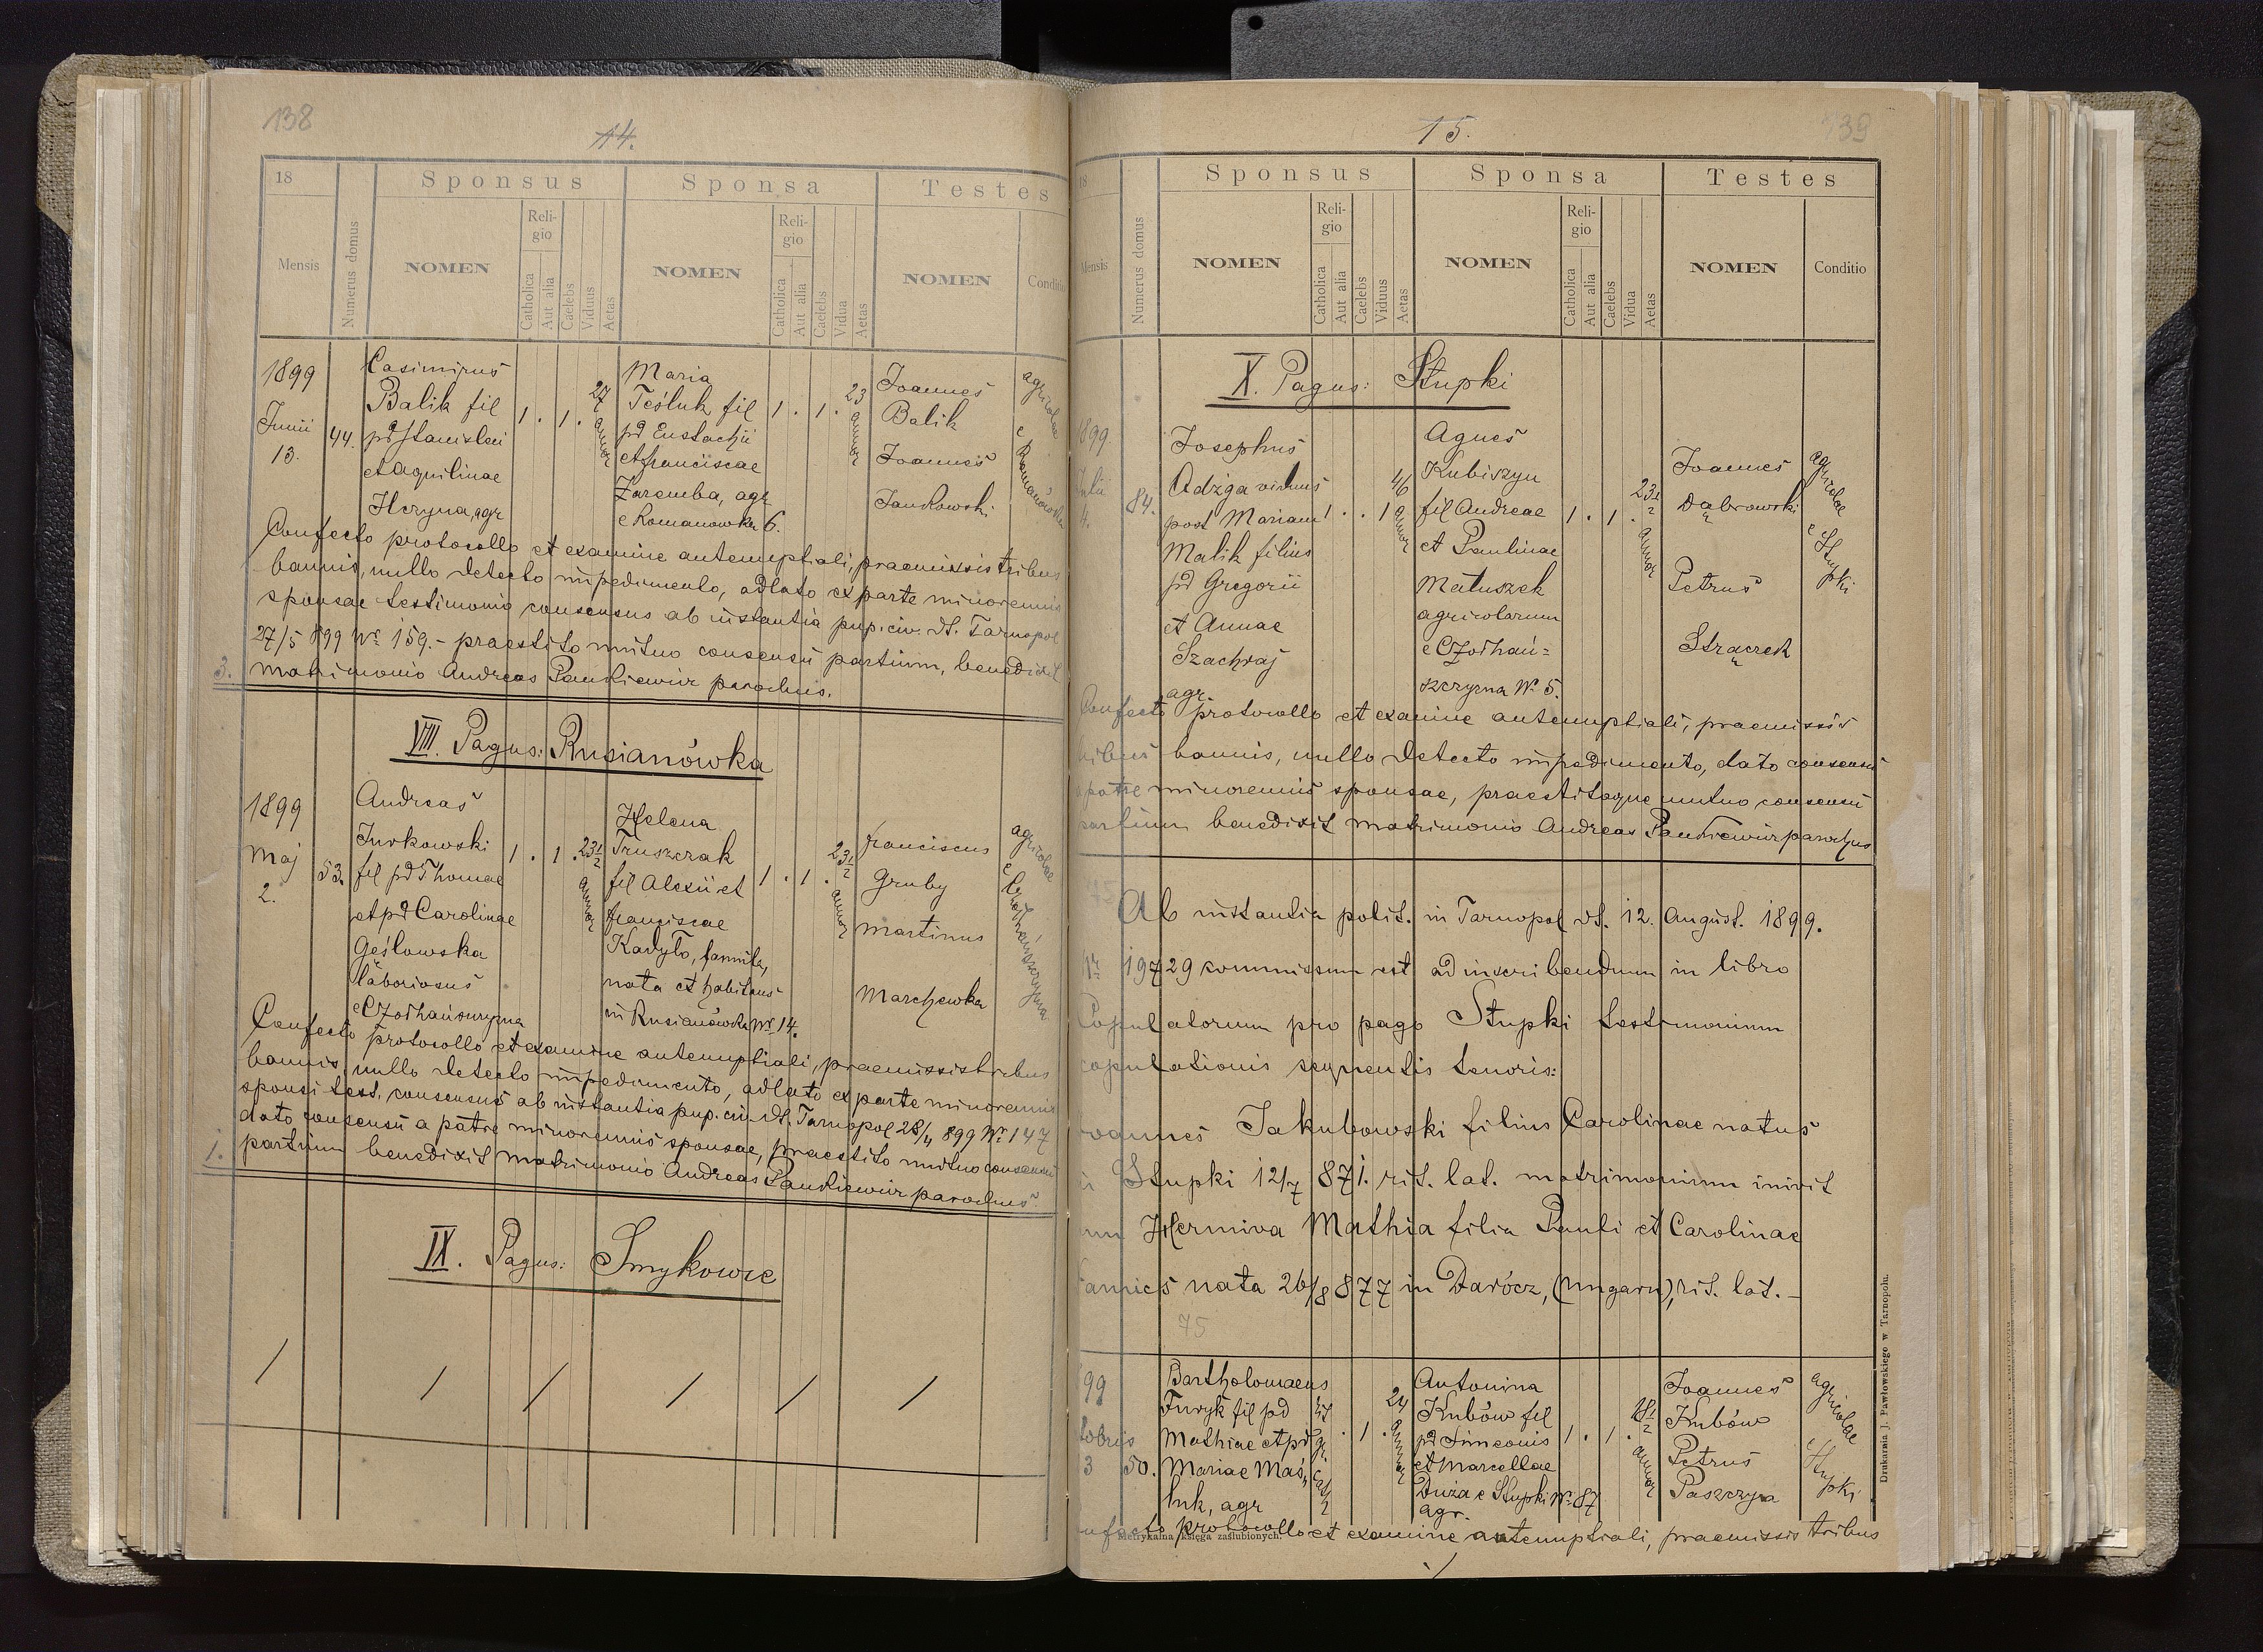 138
14.
18
Sponsus
Sponsa
Testes
Mensis
Numerus domus
NOMEN
Religio
Catholica
Aut alia
Caelebs
Viduus
Aetas
NOMEN
Religio
Catholica
Aut alia
Caelebs
Vidua
Aetas
NOMEN
Conditio
1899
Junii
13.
44.
Casimirus
Balik fil
pd Stanislai
et Aquilinae
Hczyna, agr
1 . 1 . 27 annor
Maria
Teśluk fil
pd Eustachii
et Franciscae
Zaremba, agr
e Romanowka 6.
1 . 1 . 23 annor
Joannes
Balik
Joannes
Jankowski
agricolae
e Romanówka
Confecto protocollo et examine antenuptiali, praemissis tribus
bannis, nullo detecto impedimento, adlato ex parte minorennis
sponsae testimonio consensus ab instantia pup. civ. dt. Tarnopol
27/5 899 Nr 159.- praestito mutuo consensu partium, benedixit
3. matrimonio Andreas Pankiewicz parochus.
VIII. Pagus: Rusianówka
1899
Maj
2.
53.
Andreas
Jurkowski
fil pd Thomae
et pd Carolinae
Gęsłowska
laboriosus
e Czołhańszczyzna
1 . 1 . 23½ annor
Helena
Truszczak
fil Alexii et
Franciscae
Kadyło,
nata et habitans
in Rusianówka Nr 14.
1 . 1 . 23½ annor
Franciscus
Gruby
Martinus
Marchewka
agricolae
e Czołhańszczyzna
Confecto protocollo et examine antenuptiali, praemissis tribus
bannis, nullo detecto impedimento, adlato ex parte minorennis
sponsi test. consensus ab instantia pup. civ. dt. Tarnopol 28/4 899 Nr 147
dato consensu a patre minorennis sponsae, praestito mutuo consensu
1. partium benedixit matrimonio Andreas Pankiewicz parochus
IX. Pagus: Smykowce
15.
139
18
Sponsus
Sponsa
Testes
Mensis
Numerus domus
NOMEN
Religio
Catholica
Aut alia
Caelebs
Viduus
Aetas
NOMEN
Religio
Catholica
Aut alia
Caelebs
Vidua
Aetas
NOMEN
Conditio
X. Pagus: Stupki
1899.
Julii
4.
84.
Josephus
Adziga viduus
post Mariam
Malik filius
pd Gregorii
et Annae
Szachraj
agr.
1 . . 1 46 annor
Agnes
Kubiszyn
fil Andreae
et Paulinae
Matuszek
agricolarum
e Czołhań=
szczyzna Nr 5.
1 . 1 . 23½ annor
Joannes
Dąbrowski
Petrus
Strączek
agricolae
e Stupki
Confecto protocollo et examine antenuptiali, praemissis
tribus bannis, nullo detecto impedimento, dato consensu
a patre minorennis sponsae, praestitoque mutuo consensu
partium benedixit matrimonio Andreas Pankiewicz parochus
75
Ab instantia polit. in Tarnopol dt. 12. August. 1899.
Nr 19729 commissum est ad inscribendum in libro
Copulatorum pro pago Stupki testimonium
copulationis sequentis tenoris:
Joannes Jakubowski filius Carolinae natus
in Stupki 12/7 871. rit. lat. matrimonium inivit
cum Hermina Mathia filia Pauli et Carolinae
nata 26/8 877 in Darócz, (Ungaru), rit. lat. -
75
99
tobris
3
50.
Bartholomaeus
Furyk fil pd
Mathiae et pd
Mariae Maś,
luk, agr
rit gr. cath
. 1 . 24 annor
Antonina
Kubów fil
pd Simeonis
et Marcellae
Duża e Stupki Nr 87
agr.
1 . 1 . 18½ annor
Joannes
Kubów
Petrus
Paszczyn
agricolae
e Stupki
Confecto protocollo et examine antenuptiali, praemissis tribus
Metrykalna księga zaślubionych.
Drukarnia J. Pawłowskiego w Tarnopolu.